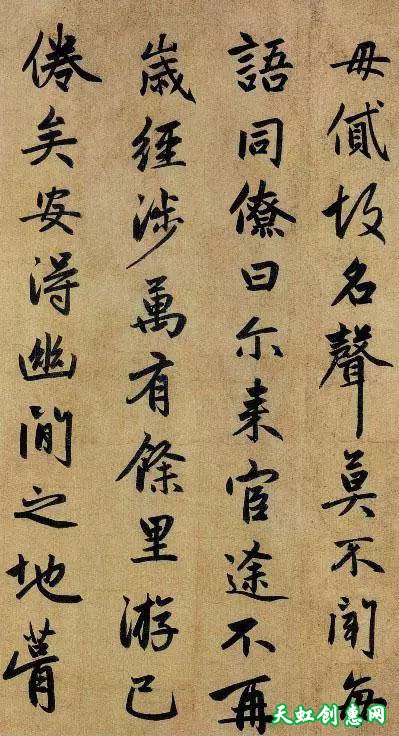 毋名聲莫不聞每
語同僚曰尔来宦途不再
歲經涉萬有餘里游已
倦矣安得幽閒之地
天虹创惠网